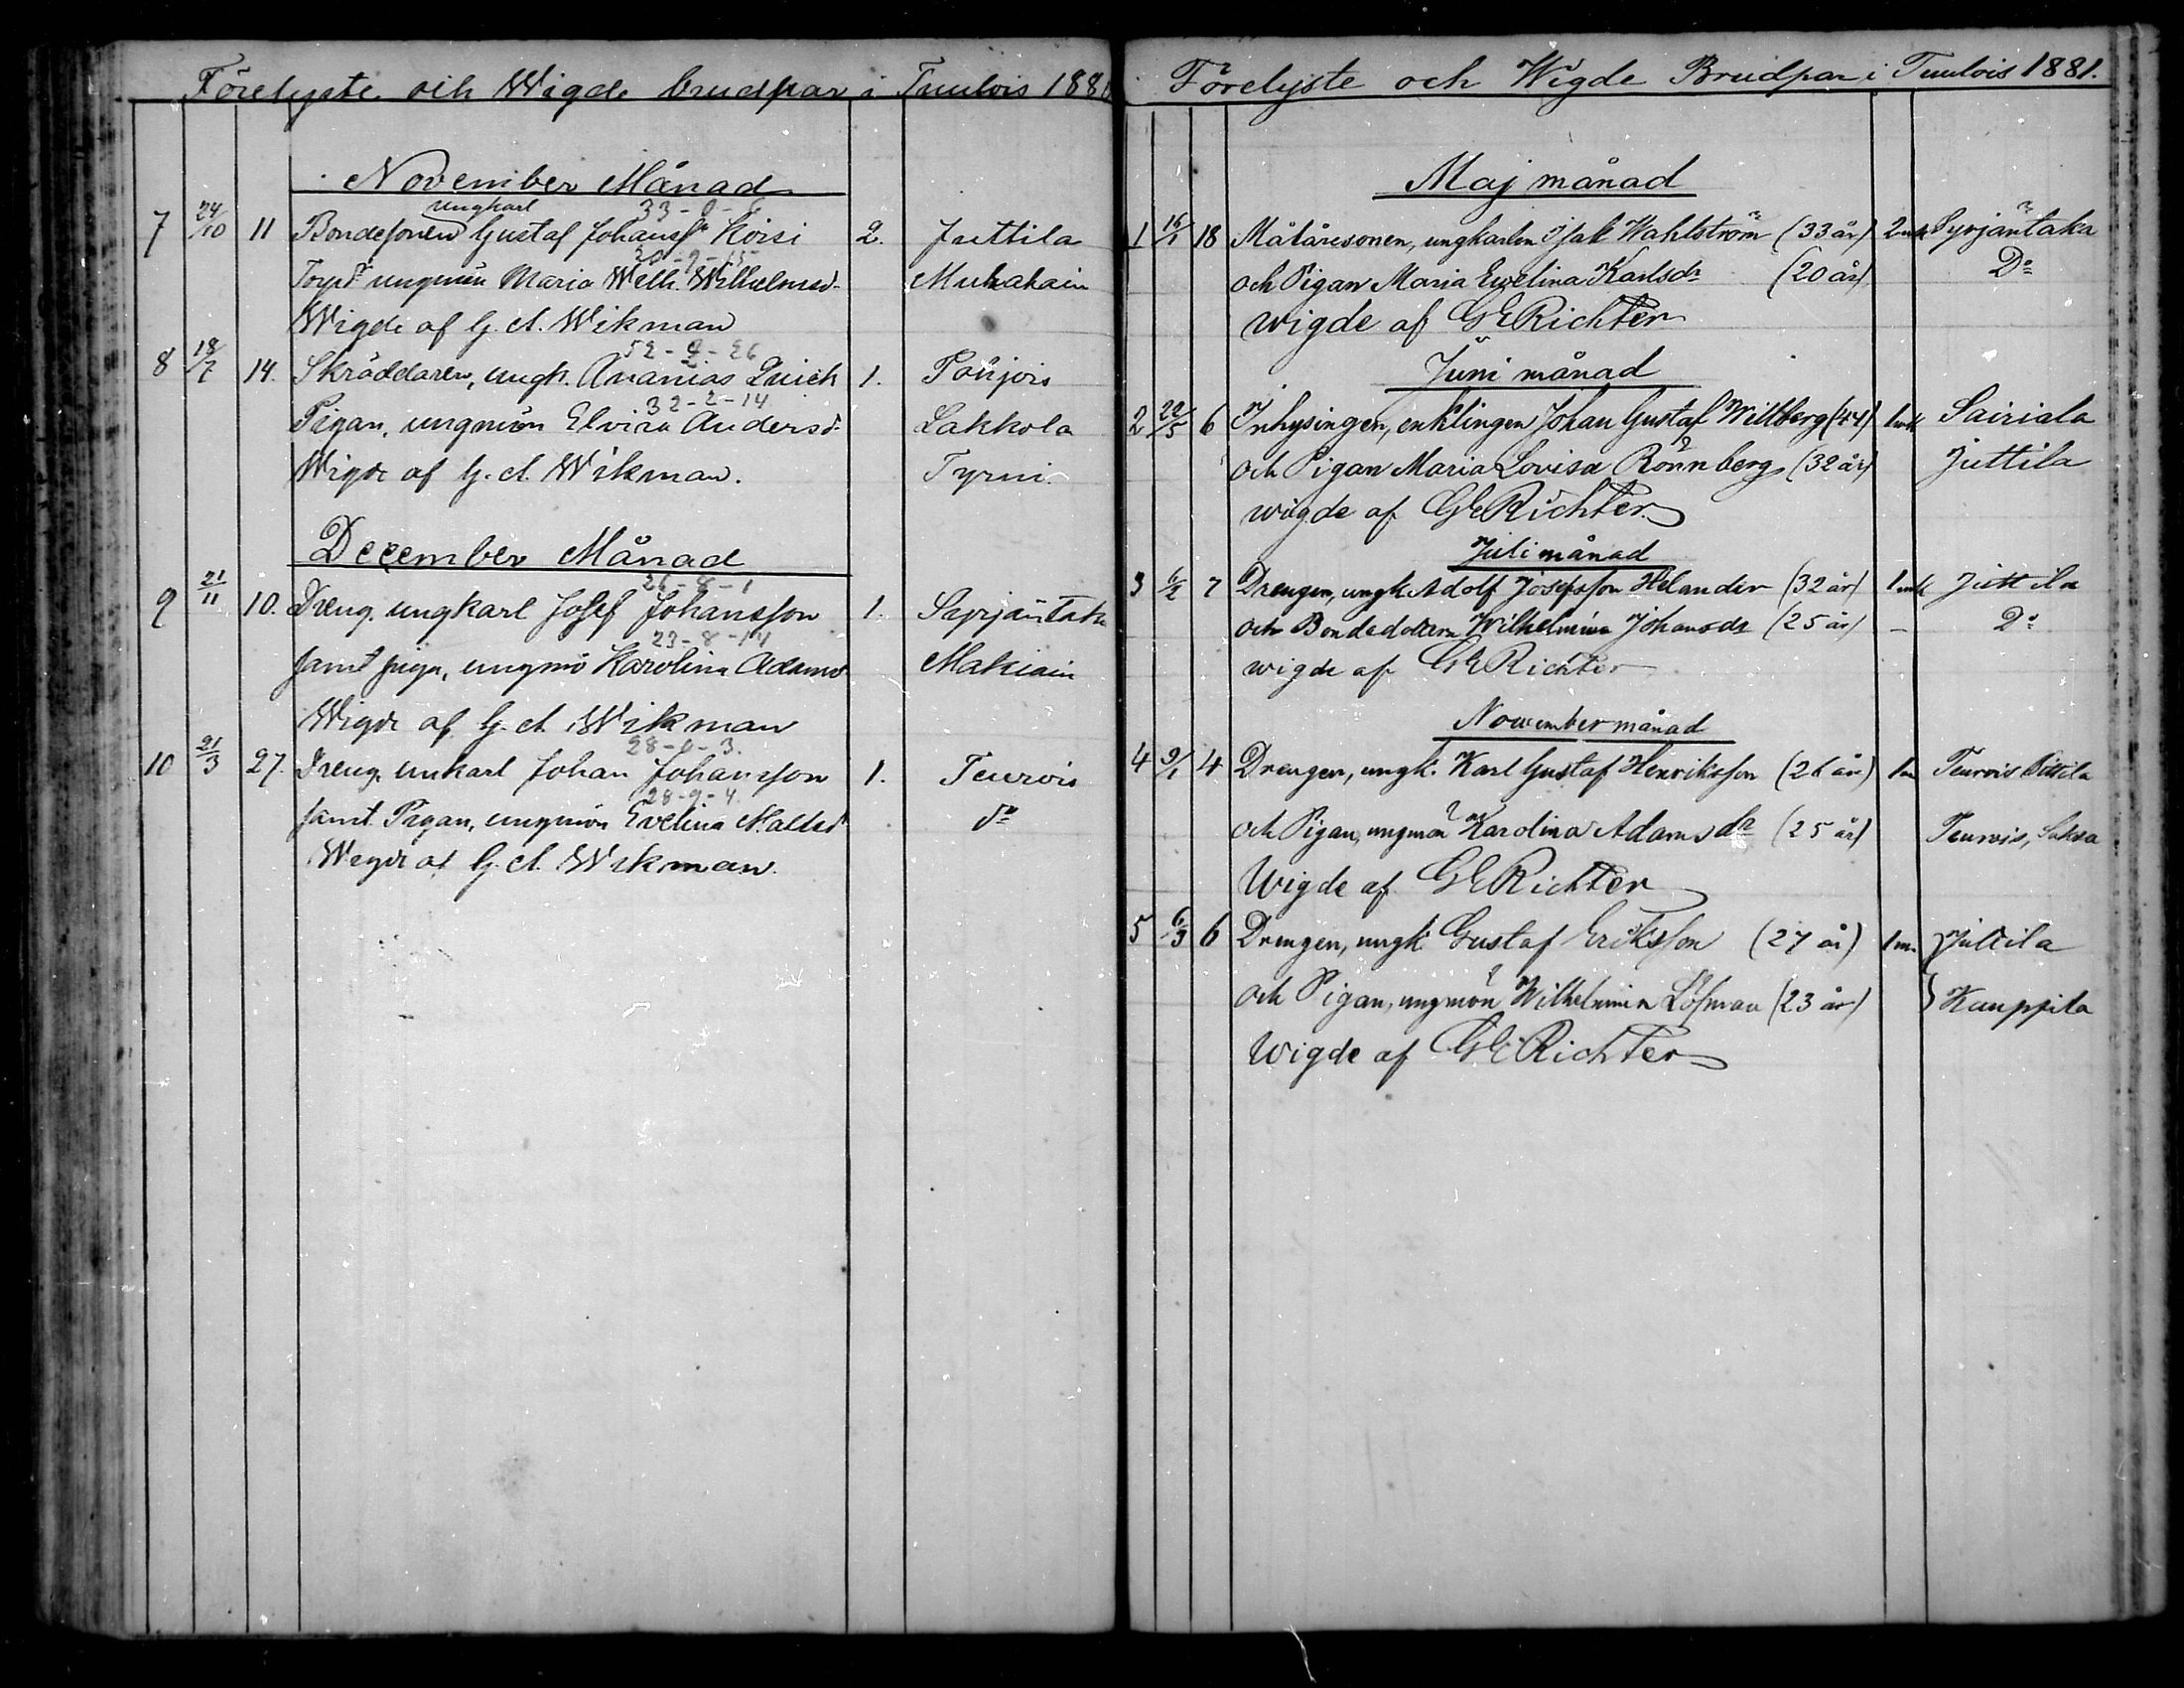 Förelyste och Wigde brudpar i Tuulois 1880
November Månad
ungkarl 33-0-6
7 24/10 11 Bondesonen Gustaf Johanss. Korsi 2. Juttila
20-9-15
Torpd. ungmön Maria Wilh. Wilhelmsd.
Wigde af G. A. Wikman
52-9-26
8 18/7 14. Skräddaren, ungk. Ananias Quick 1. Pohjois
32-2-14
Pigan, ungmön Elvira Andersd. Lakkola
Wigde af G. A. Wikman. Tyrni
December Månad
26-8-1
9 21/11 10. Dreng. ungkarl Josef Johansson 1. Syrjäntaka
23-8-14
samt piga, ungmö Karolina Adamsd. Makiain
Wigde af G. A. Wikman
28-0-3.
10 21/3 27. Dreng. unkarl Johan Johansson 1. Teurois
28-9-4.
samt Pigan, ungmön Evelina Mattsd. do
Wigde af G. A. Wikman.
Förelyste och Wigde Brudpar i Tuulois 1881.
Maj månad
1 18 Målaresonen, ungkarlen Isak Wahlström (33 år) 2 mk Syrjäntaka
och Pigan Maria Ewelina Karlsdr (20 år) Do
wigde af GE Richter
Juni månad
2 22/5 6 Inhysingen, enklingen Johan Gustaf Willberg (44) 1 mk Sairiala
och Pigan Maria Lovisa Rönnberg (32 år) Juttila
wigde af GE Richter
Juli månad
3 6/2 7 Drengen, ungk Adolf Josefsson Helander (32 år) 1 mk Juttila
och Bondedottern Wilhelmina Johansdr (25 år) - Do
wigde af GE Richter
November månad
4 9/1 4 Drengen, ungk. Karl Gustaf Henriksson (26 år) 1 m Teurois
och Pigan, ungmön Karolina Adamsdr (25 år) Teurois, Saksa
Wigde af GE Richter
5 6/3 6 Drengen, ungk Gustaf Eriksson (27 år) 1 m Juttila
och Pigan, ungmön Wilhelmina Löfman (23 år) Kauppila
Wigde af GE Richter